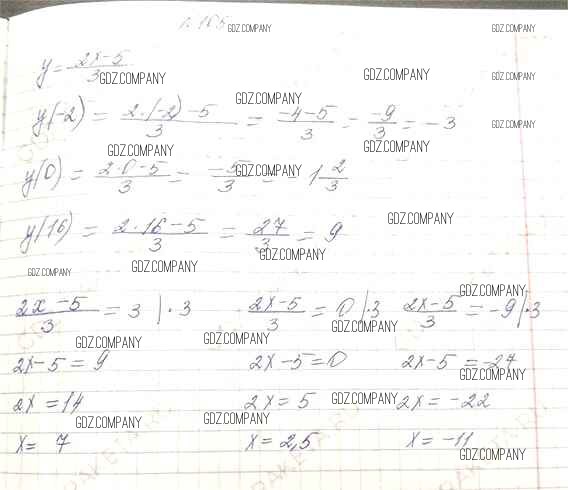 n. 165 GDZ.COMPANY GDZ.COMPANY
y = (2x-5)/3 GDZ.COMPANY GDZ.COMPANY GDZ.COMPANY
GDZ.COMPANY
y(-2) = (2·(-2)-5)/3 = (-4-5)/3 = (-9)/3 = -3 GDZ.COMPANY
GDZ.COMPANY GDZ.COMPANY
y(0) = (2·0-5)/3 = (-5)/3 = -1 2/3 GDZ.COMPANY
GDZ.COMPANY
y(16) = (2·16-5)/3 = 27/3 = 9
GDZ.COMPANY
GDZ.COMPANY GDZ.COMPANY
GDZ.COMPANY
(2x-5)/3 = 3 |·3 (2x-5)/3 = 0 |·3 (2x-5)/3 = -9 |·3
GDZ.COMPANY GDZ.COMPANY GDZ.COMPANY
2x-5 = 9 2x-5 = 0 2x-5 = -27
GDZ.COMPANY
2x = 14 2x = 5 GDZ.COMPANY 2x = -22
GDZ.COMPANY GDZ.COMPANY
x = 7 x = 2,5 x = -11
GDZ.COMPANY